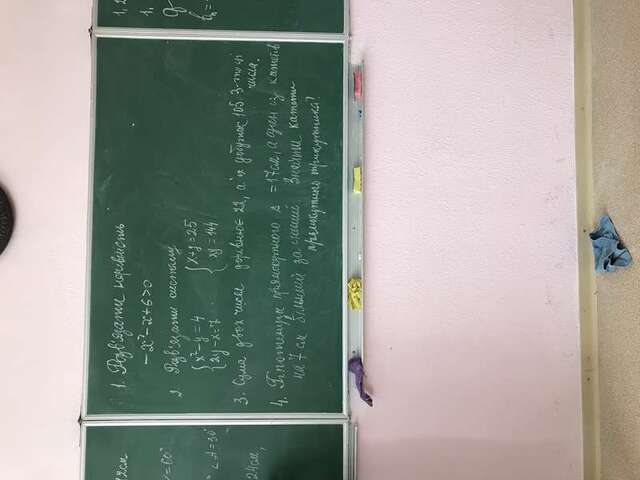 12см
=60°
∠A=30°
24см,
1. Розв'язати нерівність
-x²-x+6>0
2. Розв'язати систему
{x²-y=4
{2y-x=7
{x+y=25
{xy=144
3. Сума двох чисел дорівнює 22, а їх добуток 105. З-ти ці
числа.
4. Гіпотенуза прямокутного Δ =17см, а один із катетів
на 7 см більший за інший Знайти катети
прямокутного трикутника!
1,
1,